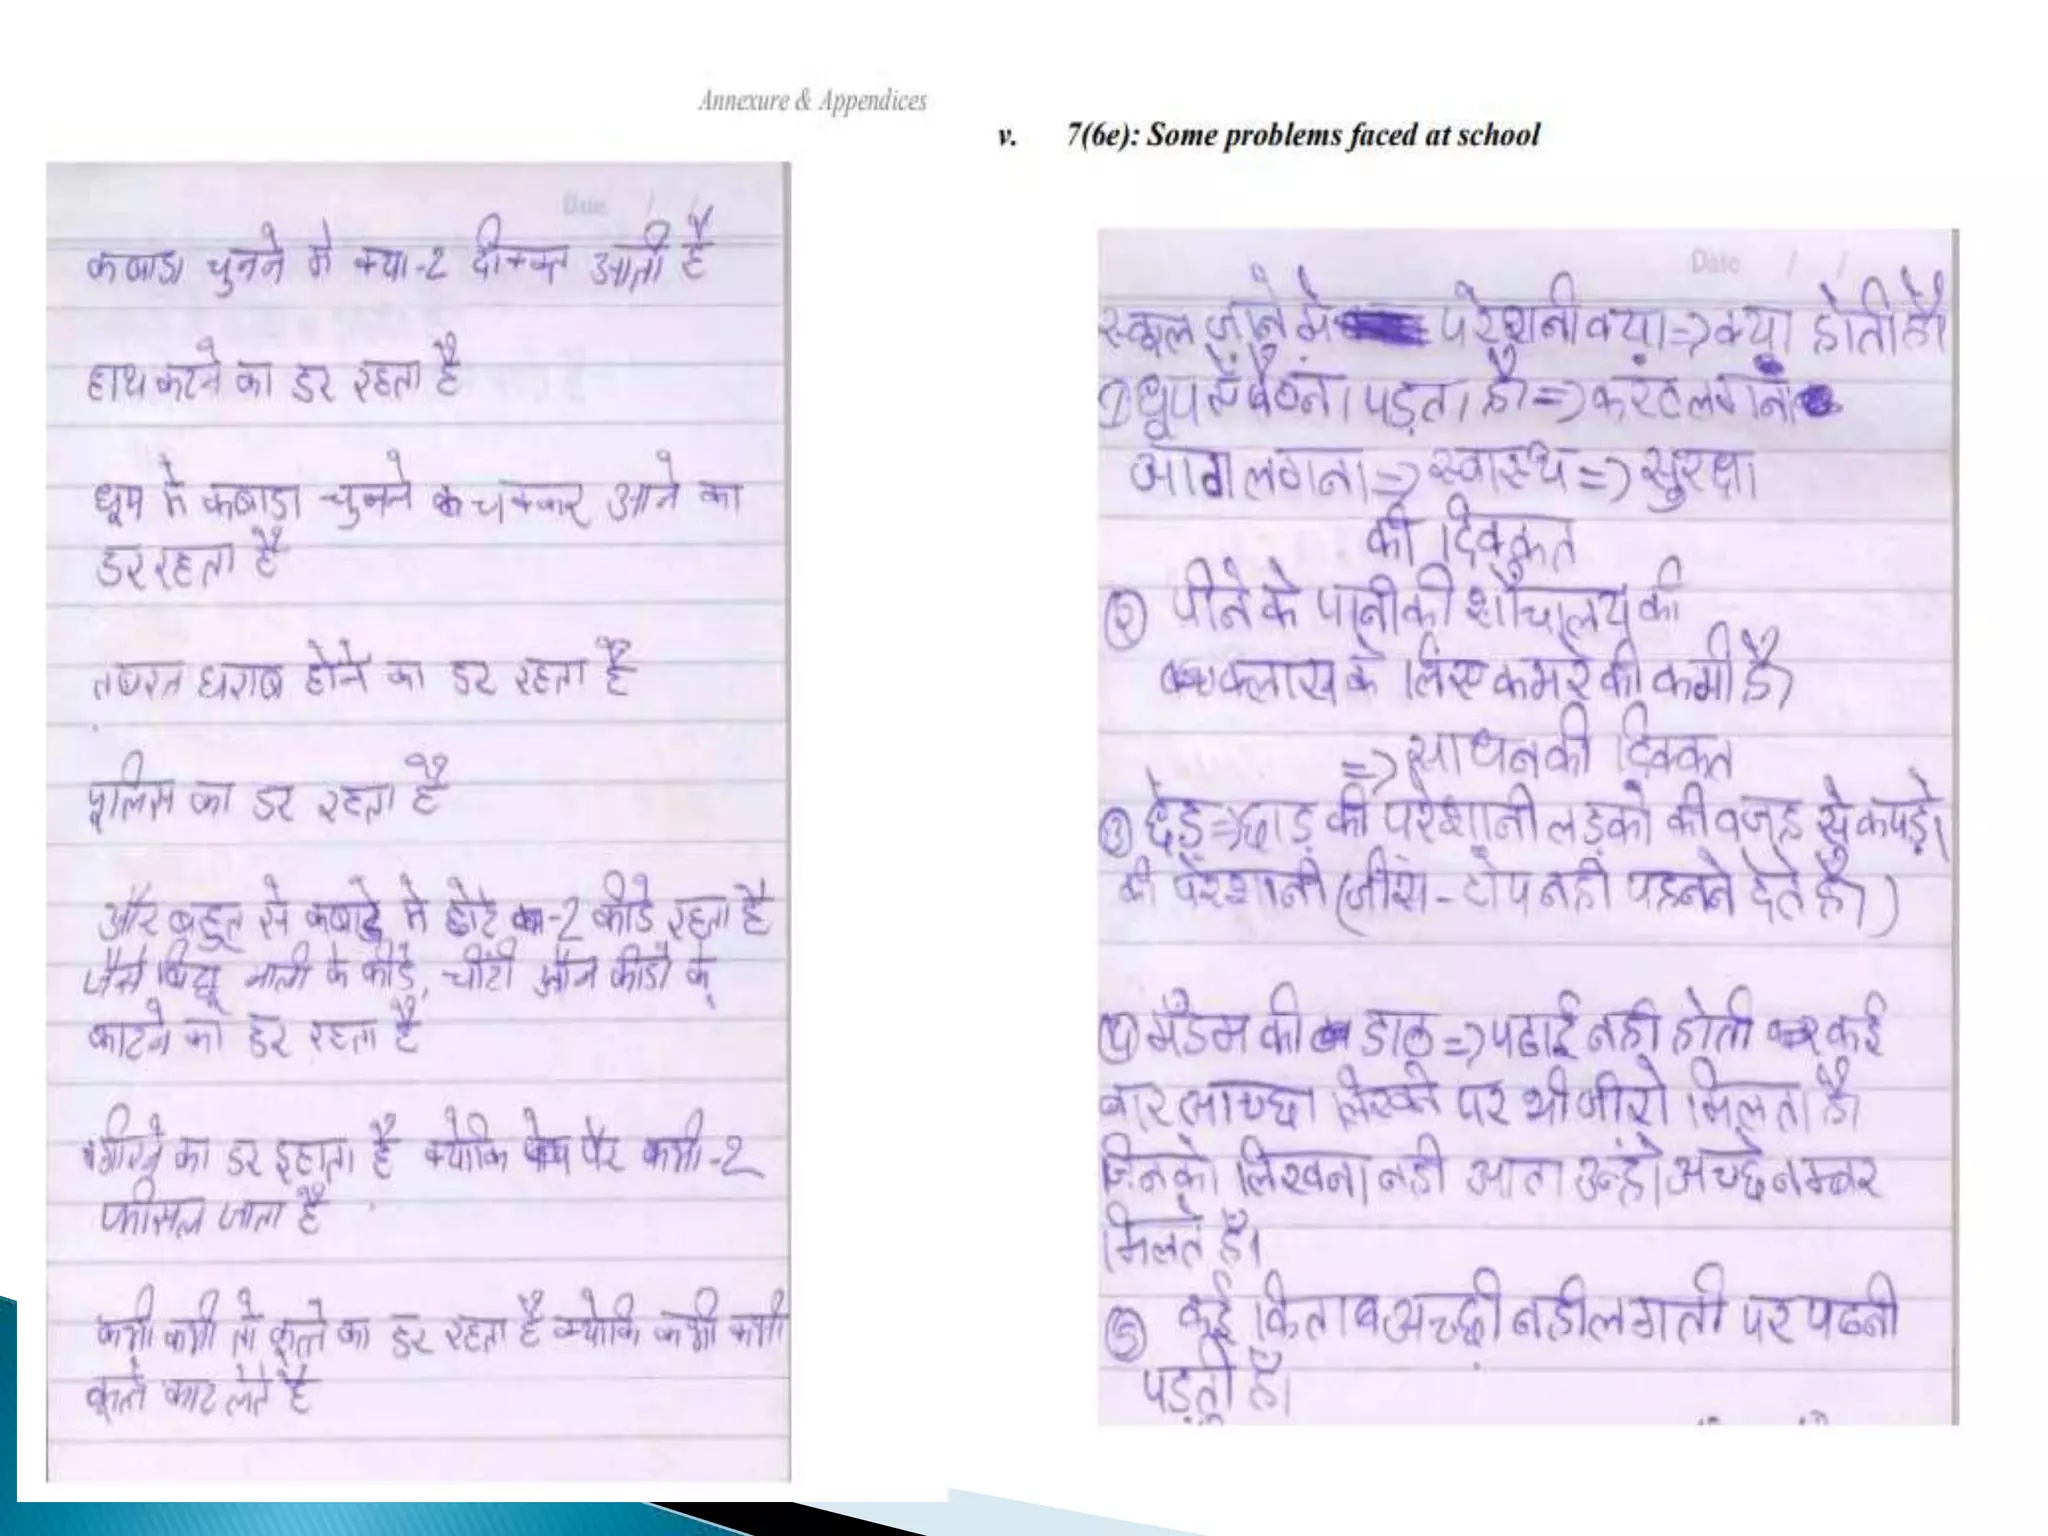 Annexure & Appendices
Date / /
कबाडा चुनने मे क्या-2 दीक्कत आती है
हाथ कटने का डर रहता है
धूप मे कबाडा चुनने के चक्कर आने का
डर रहता है
तबयत घराब होने का डर रहता है
पुलिस का डर रहता है
और बहुत से कबाडे मे छोटे -2 कीडे रहता है
जैसे बिछू नाली के कीडे, चींटी कीडो के
काटने का डर रहता है
गीरने का डर रहाता है क्योकि पैर कभी-2
फीसल जाता है
कभी कभी तो कूत्ते का डर रहता है क्योकि कभी कभी
कूत्ते काट लेते है
v. 7(6e): Some problems faced at school
Date / /
स्कूल जाने मे परेशनी क्या=>क्या होती है।
① धूप में बैठना पड़ता है=>करंट लगना
आग लगना=>स्वास्थ=>सुरक्षा
की दिक्कत
② पीने के पानी की शौचालय की
क्लास के लिए कमरे की कमी है
=>साधन की दिक्कत
③ छेड़=>छाड़ की परेशानी लड़को की वजह से कपड़े
की परेशानी (जींस-टोप नही पहनने देते है)
④ मैडम की डाठ=>पढाई नही होती कई
बार अच्छा लिखने पर भी जीरो मिलता है।
जिनको लिखना नही आता उन्हें अच्छे नम्बर
मिलते है।
⑤ कई किताब अच्छी नही लगती पर पढनी
पड़ती है।